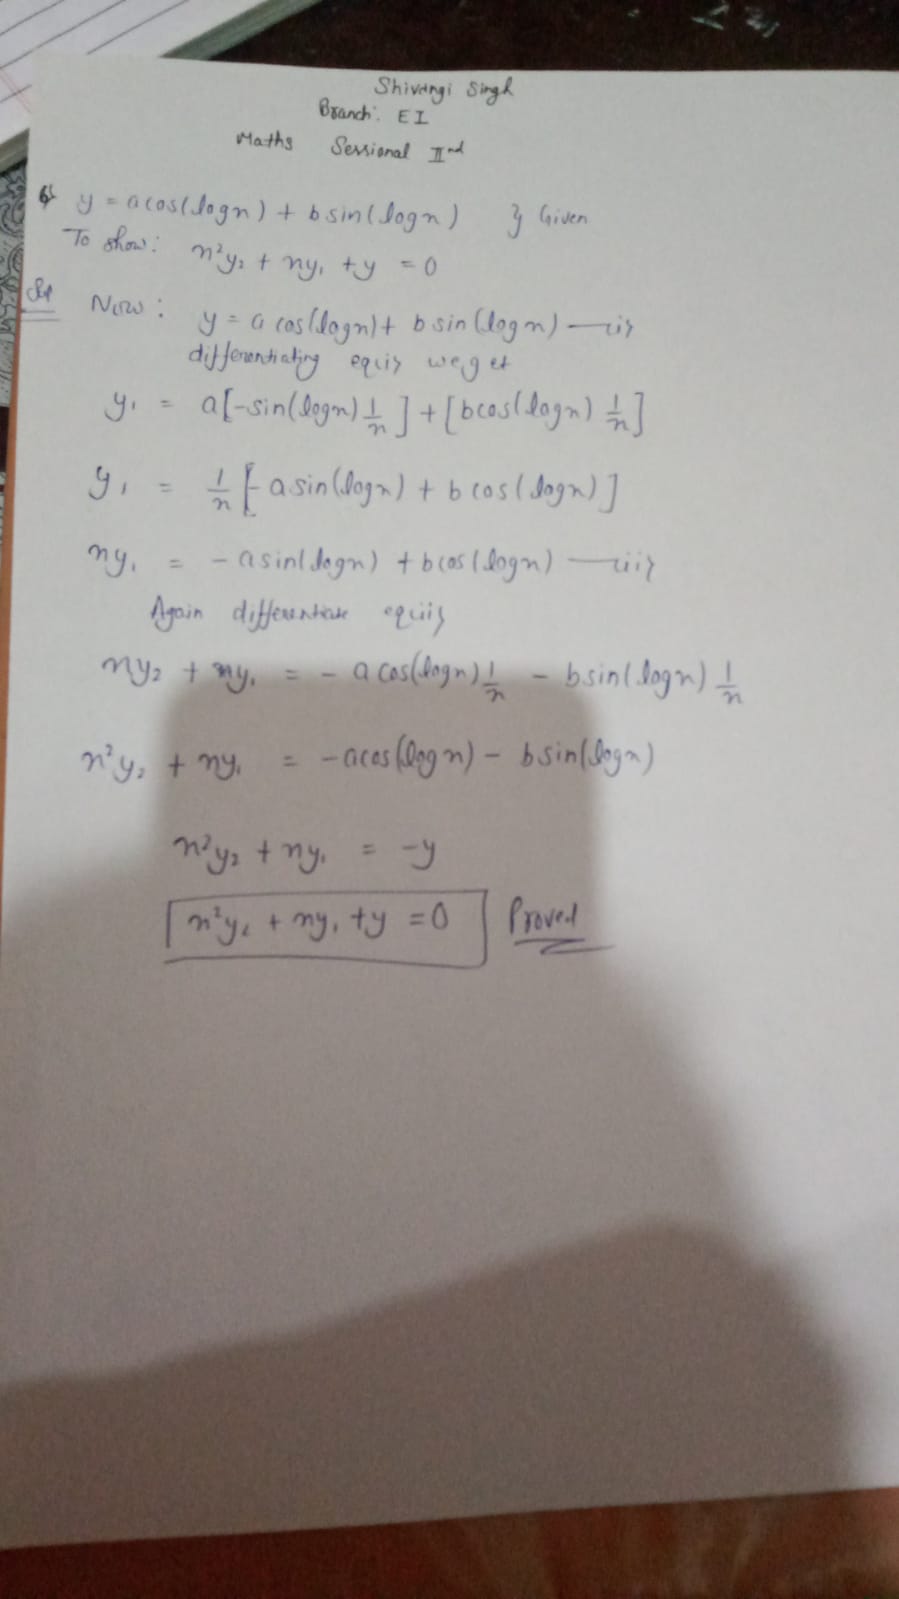 Shivangi Singh
Branch: EI
Maths Sessional IInd
6) y = a cos(log x) + b sin(log x) } Given
To show: x²y₂ + xy₁ + y = 0
Sol Now: y = a cos(log x) + b sin(log x) —(i)
differentiating eq(i) we get
y₁ = a[-sin(log x) 1/x] + [b cos(log x) 1/x]
y₁ = 1/x [-a sin(log x) + b cos(log x)]
xy₁ = - a sin(log x) + b cos(log x) —(ii)
Again differentiate eq(ii)
xy₂ + y₁ = - a cos(log x) 1/x - b sin(log x) 1/x
x²y₂ + xy₁ = - a cos(log x) - b sin(log x)
x²y₂ + xy₁ = -y
x²y₂ + xy₁ + y = 0 Proved